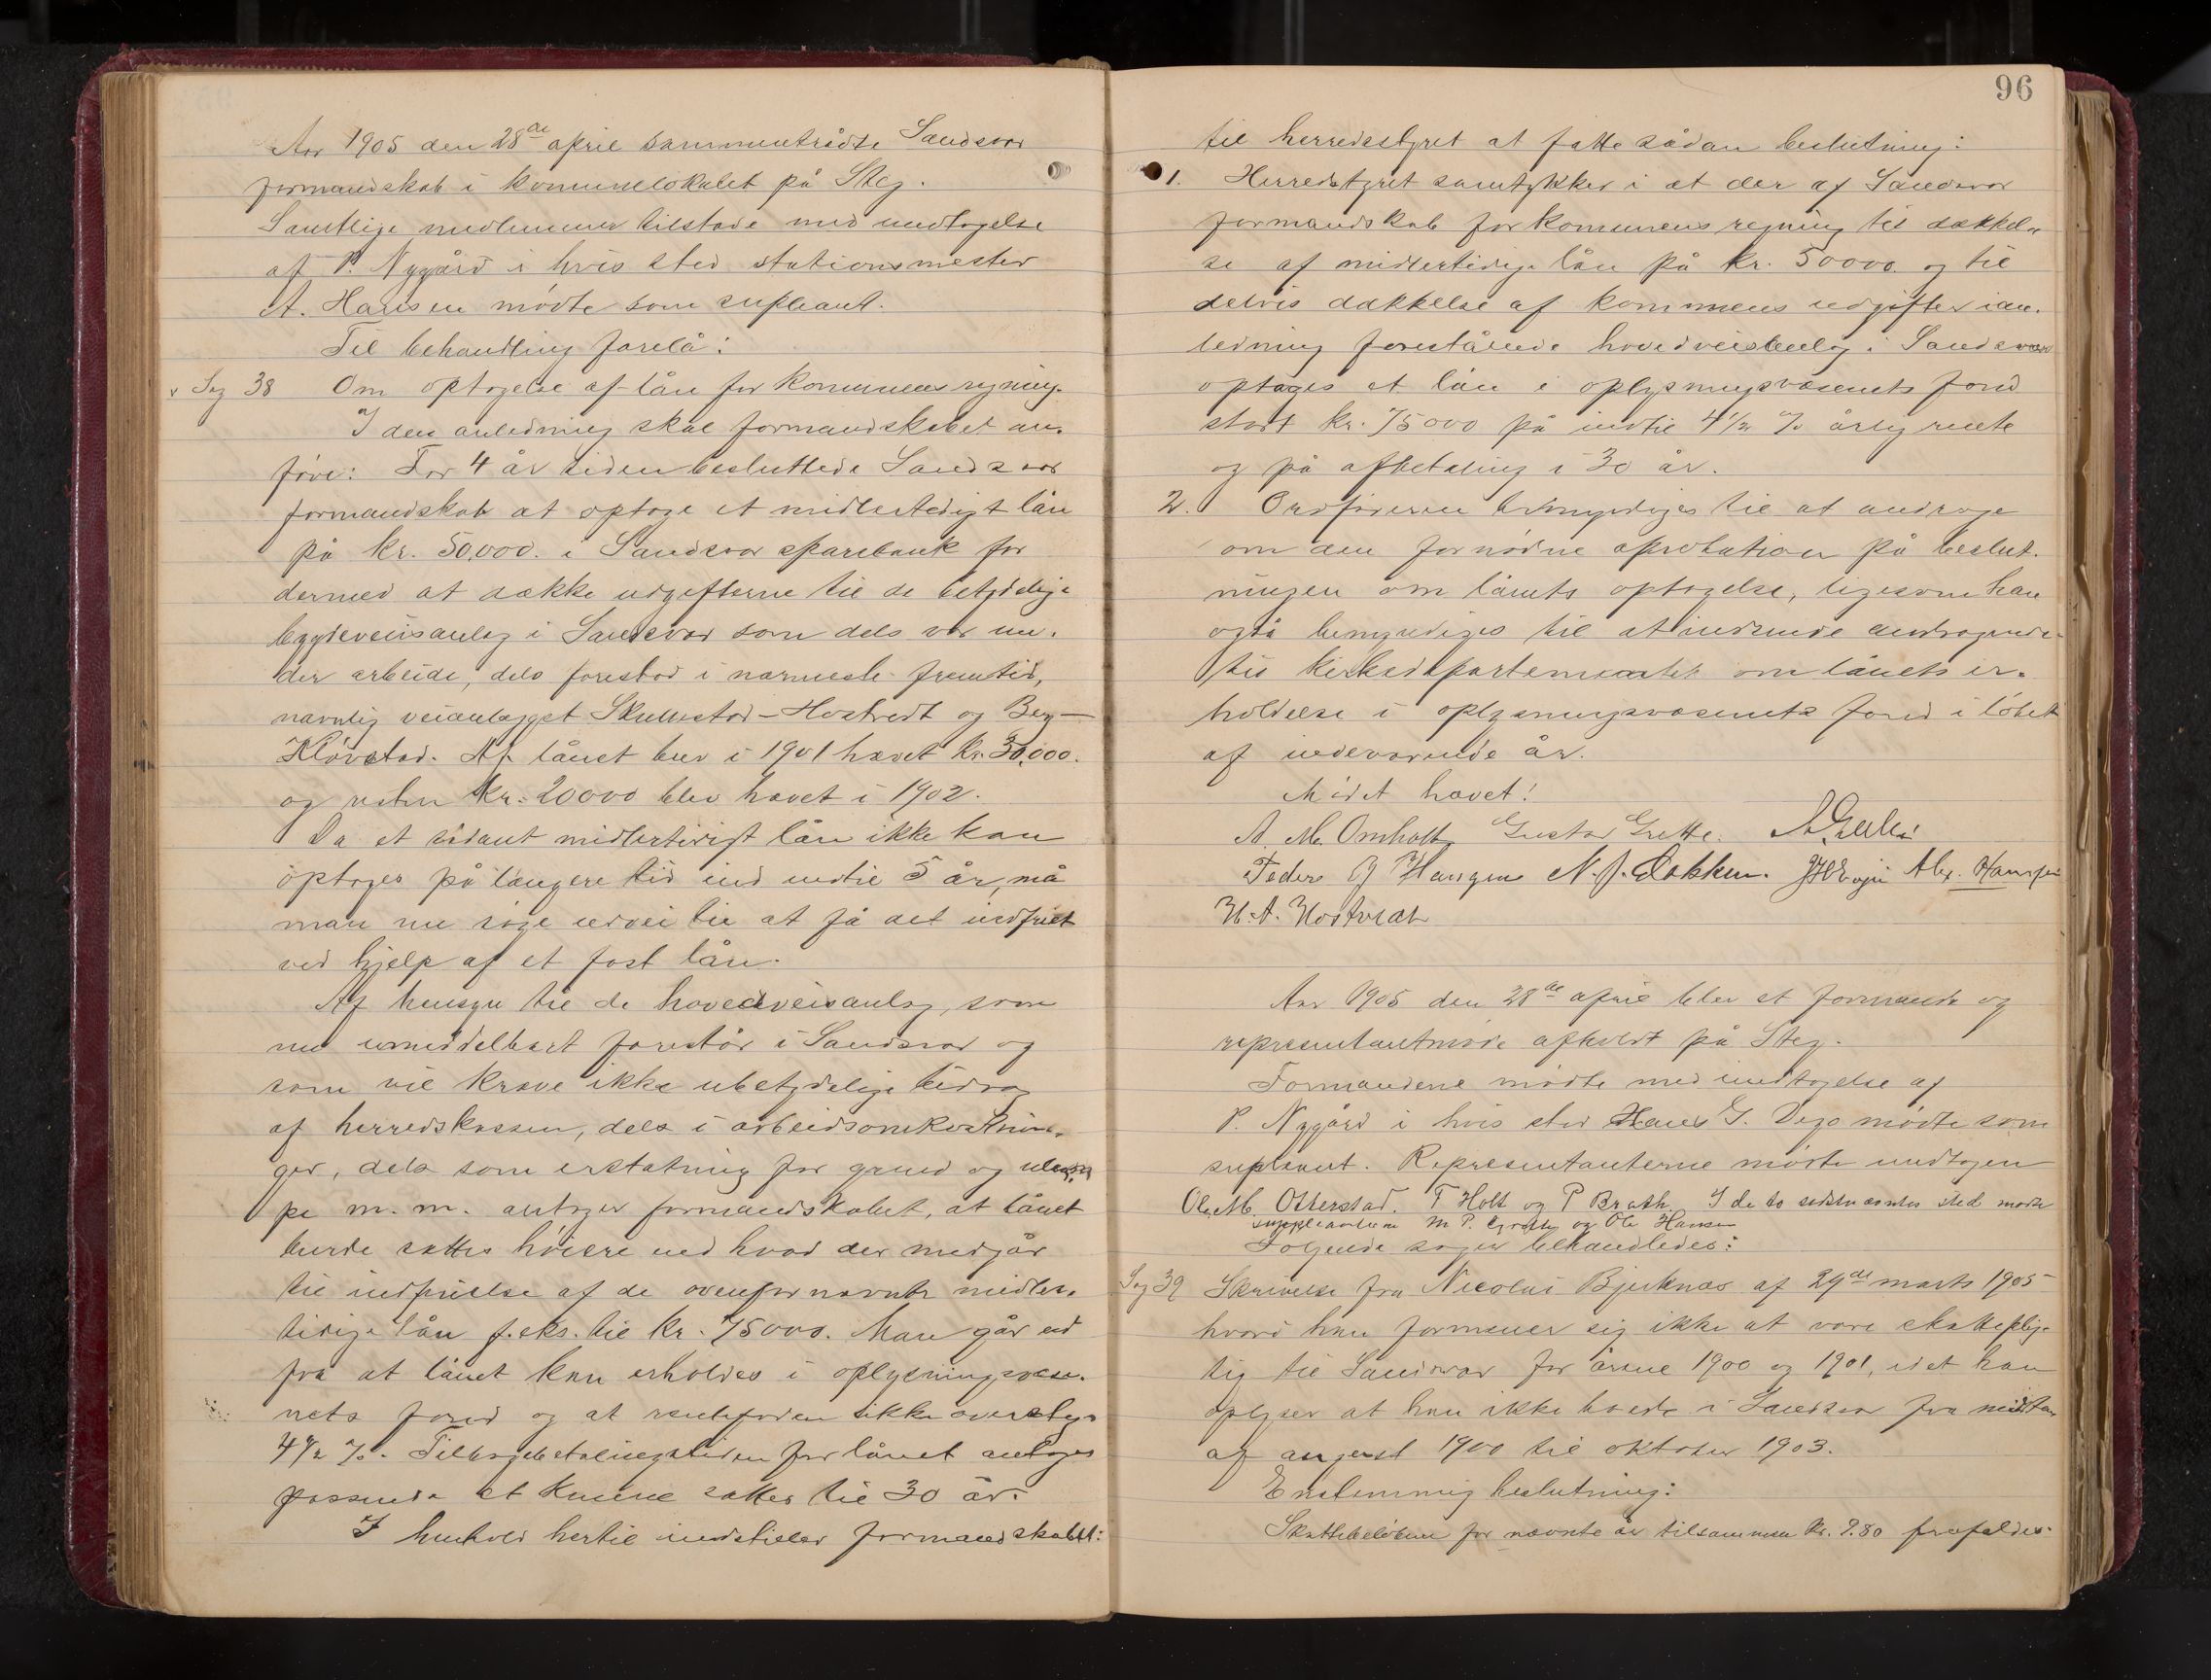 Aar 1905 den 28de april sammentrådte Sandsvær
formandskab i komunelokalet på Steg.
Samtlige medlemmer tilstede med undtagelse
af P. Nygård i hvis sted stationsmester
A. Hansen mødte som supleant.
Til behandling forelå:
v Sag 38 Om optagelse af lån for kommunens regning.
I den anledning skal formandskabet an-
føre: For 4 år siden besluttede Sandsvær
formandskab at optage et midlertidigt lån
på kr. 50,000. i Sandsvær sparebank for
dermed at dække udgifterne til de betydelige
bygdeveisanlæg i Sandsvær som dels var un-
der arbeide, dels forestod i nærmeste fremtid,
navnlig veianlægget Skullestad-Hostvedt og Beg-
Kløvstad. Af lånet blev i 1901 hævet kr. 30,000.
og resten kr. 20000 blev hævet i 1902.
Da et sådant midlertidigt lån ikke kan
optages på længere tid end indtil 5 år, må
man nu søge udvei til at få det indfriet
ved hjælp af et fast lån.
Af hensyn til de hovedveisanlæg, som
nu umiddelbart forestår i Sandsvær og
som vil kræve ikke ubetydelige bidrag
af herredskassen, dels i arbeidsomkostnin-
ger, dels som erstatning for grund og ulem-
pe m.m. antager formandskabet, at lånet
burde sættes høiere end hvad der medgår
til indfrielse af de ovenfor nævnte midler-
tidige lån f.eks. til kr. 75000. Man går ud
fra at lånet kan erholdes i oplysningsvæse-
nets fond og at rentefoden ikke overstiger
4 1/2 %. Tilbagebetalingstiden for lånet antages
passende at kunne sættes til 30 år.
I henhold hertil indstiller formandskabet:
96
til herredsstyret at fatte sådan beslutning:
1. Herredstyret samtykker i at der af Sandsvær
formandskab for kommunens regning til dækkel-
se af midlertidige lån på kr. 50000 og til
delvis dækkelse af kommunens udgifter i an-
ledning forestående hovedveisanlæg i Sandsvær
optages et lån i oplysningsvæsenets fond
stort kr. 75000 på indtil 4 1/2 % årlig rente
og på afbetaling i 30 år.
2. Ordføreren bemyndiges til at andrage
om den fornødne aprobation på beslut-
ningen om lånets optagelse, ligesom han
også bemyndiges til at indsende andragende
til kirkedepartementet om lånets er-
holdelse i oplysningsvæsenets fond i løbet
af indeværende år.
Mødet hævet!
A. M. Omholt Gustav Grette.
Peder J Haugen N. J. Bakken. Alex. Hansen
H. A. Hostvedt
Aar 1905 den 28de april blev et formands og
representantmøde afholdt på Steg.
Formændene mødte med undtagelse af
P. Nygård i hvis sted Hans G. mødte som
supleant. Representanterne mødte undtagen
Ole M. Otterstad. T Holt og P Bråth. I de to sidstnævntes sted mødte
suppleanterne M P. og Ole Hansen
Følgende sager behandledes:
Sag 39 Skrivelse fra Nicolai Bjerknæs af 29de marts 1905
hvori han formener sig ikke at være skatteplig-
tig til Sandsvær for årene 1900 og 1901, idet han
oplyser at han ikke boede i Sandsvær fra midten
af august 1900 til oktober 1903.
Enstemmig beslutning:
Skattebeløbene for nævnte år tilsammen kr. 9.80 frafaldes.